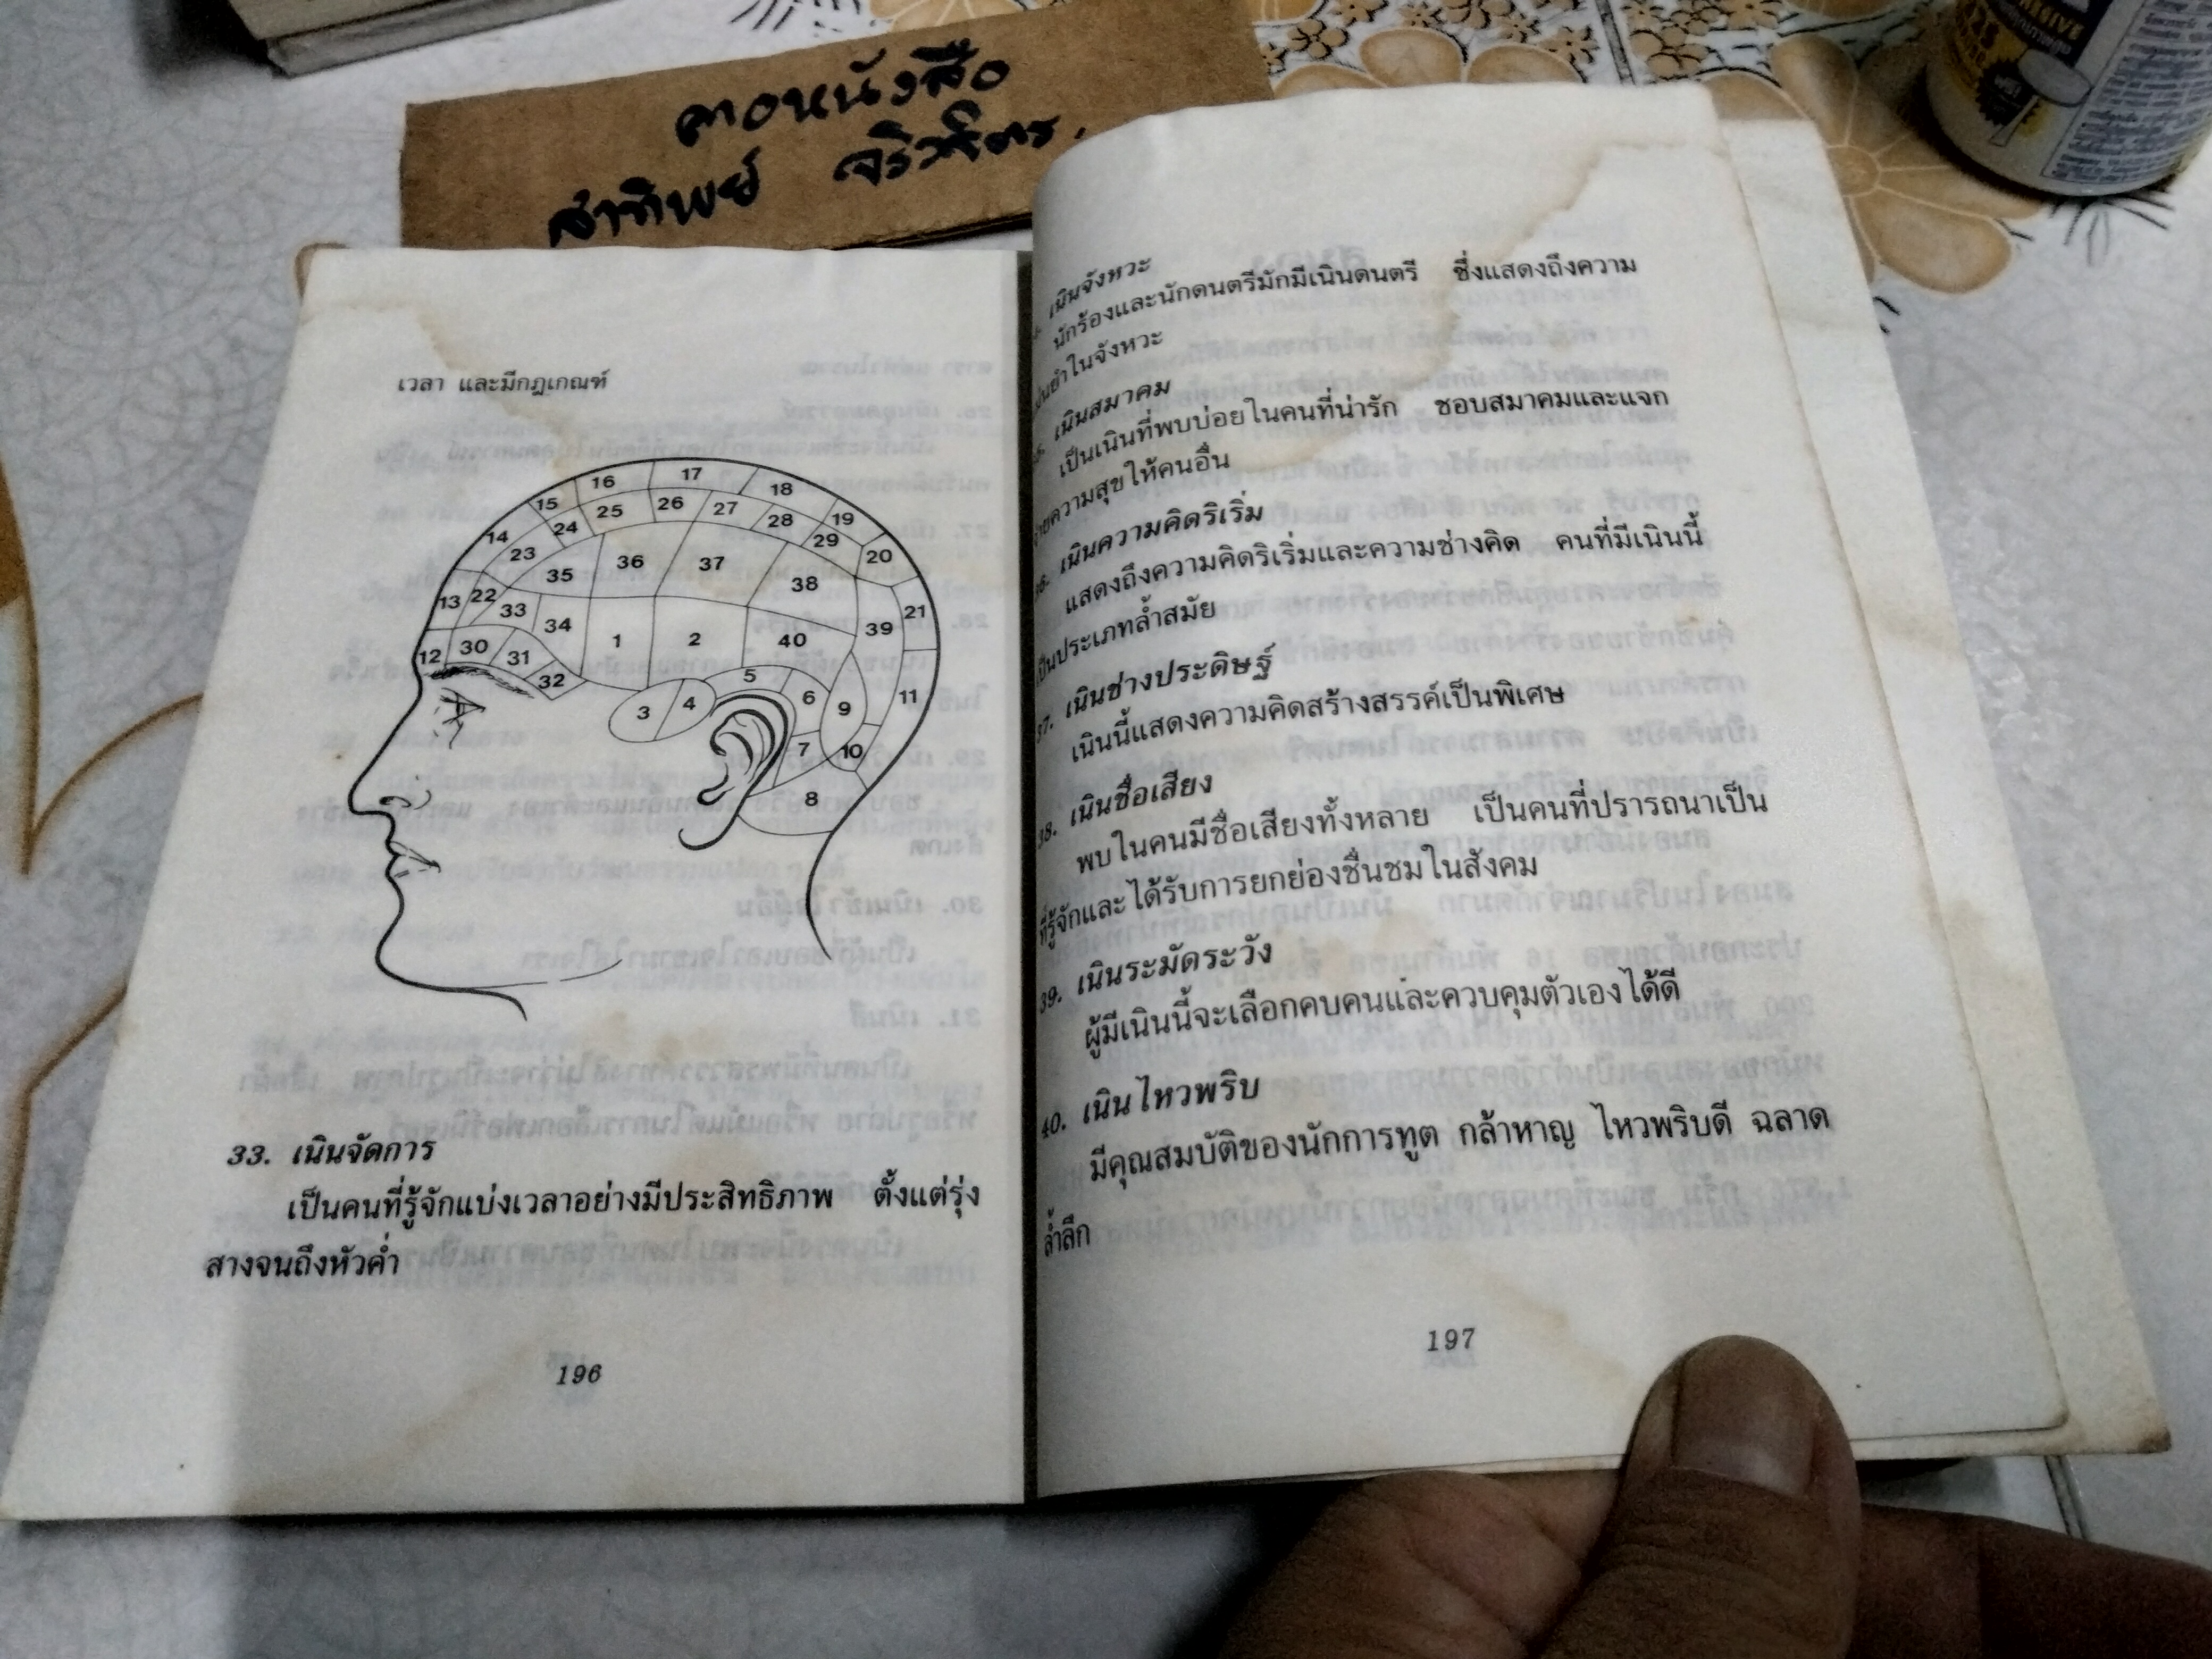 สาทิพย์
เวลา และมีกฎเกณฑ์
17
16
18
15
25
26
27
28
19
14
24
29
20
23
36
37
35
38
13
22
33
21
34
39
1
2
40
12
30
31
32
5
11
3
4
6
9
7
10
8
33. เนินจัดการ
เป็นคนที่รู้จักแบ่งเวลาอย่างมีประสิทธิภาพ ตั้งแต่รุ่ง
สางจนถึงหัวค่ำ
196
เนินจังหวะ
นักร้องและนักดนตรีมักมีเนินดนตรี ซึ่งแสดงถึงความ
ในจังหวะ
เนินสมาคม
เป็นเนินที่พบบ่อยในคนที่น่ารัก ชอบสมาคมและแจก
ความสุขให้คนอื่น
เนินความคิดริเริ่ม
แสดงถึงความคิดริเริ่มและความช่างคิด คนที่มีเนินนี้
เป็นประเภทล้ำสมัย
37. เนินช่างประดิษฐ์
เนินนี้แสดงความคิดสร้างสรรค์เป็นพิเศษ
38. เนินชื่อเสียง
พบในคนมีชื่อเสียงทั้งหลาย เป็นคนที่ปรารถนาเป็น
ที่รู้จักและได้รับการยกย่องชื่นชมในสังคม
39. เนินระมัดระวัง
ผู้มีเนินนี้จะเลือกคบคนและควบคุมตัวเองได้ดี
40. เนินไหวพริบ
มีคุณสมบัติของนักการทูต กล้าหาญ ไหวพริบดี ฉลาด
ล้ำลึก
197